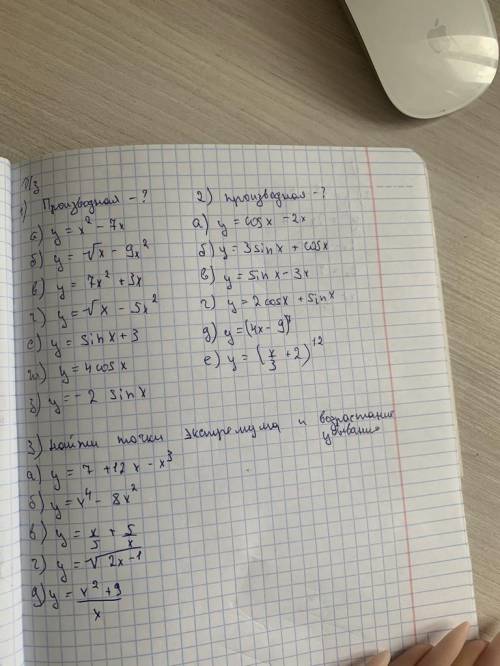 Д/з
1) Производная - ?
а) y = x² - 7x
б) y = √x - 9x²
в) y = 7x² + 3x
г) y = √x - 5x²
е) y = sinx + 3
ж) y = 4 cosx
з) y = - 2 sinx
2) производная - ?
а) y = cosx - 2x
б) y = 3 sinx + cosx
в) y = sinx - 3x
г) y = 2 cosx + sinx
д) y = (4x - 9)⁷
е) y = (x/3 + 2)¹²
3) найти точки экстремума и возрастание убывание
а) y = 7 + 12x - x³
б) y = x⁴ - 8x²
в) y = x/5 + 5/x
г) y = √2x-1
д) y = x² + 9 / x